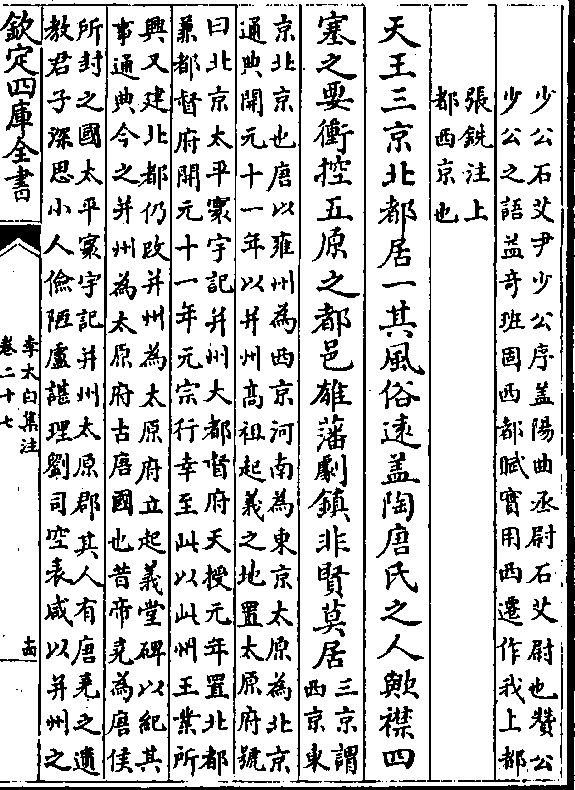 少公石艾尹少公序蓋陽曲丞尉石艾尉也贊公
少公之語益奇班固西都賦實用西遷作我上都
張銑注上
都西京也
天王三京北都居一其風俗逺蓋陶唐氏之人歟襟四
塞之要衝控五原之都邑雄藩劇鎮非賢莫居
三京謂
西京東
京北京也唐以雍州為西京河南為東京太原為北京
通典開元十一年以并州髙祖起義之地置太原府號
曰北京太平寰宇記并州大都督府天授元年置北都
兼都督府開元十一年元宗行幸至此以此州王業所
興又建北都仍改并州為太原府立起義堂碑以紀其
事通典今之并州為太原府古唐國也昔帝堯為唐侯
所封之國太平寰宇記并州太原郡其人有唐堯之遺
教君子深思小人儉陋盧諶理劉司空表咸以并州之
欽定四庫全書
李太白集注
卷二十七
十四